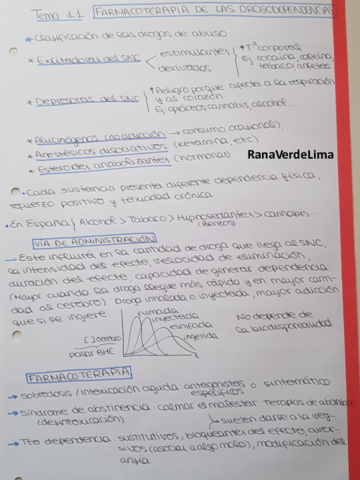 Tema 11 FARMACOTERAPIA DE LAS DROGODEPENDENCIAS
* Clasificación de las drogas de abuso:
* Excitadores del SNC estimulantes ↑Tª corporal
derivados Ej cocaína, cafeína,
tabaco, anfetas
* Depresoras del SNC ↑Peligro porque afecta a la respiración
y al corazón
Ej: opiáceos, cannabis, alcohol...
* Alucinógenos (no adicción) → consumo ocasional).
* Anestésicos disociativos (ketamina, etc).
* Esteroides anabolizantes (hormonas) RanaVerdeLima
• Cada sustancia presenta diferente dependencia física,
refuerzo positivo y toxicidad crónica.
• En España/ Alcohol > Tabaco > Hiposedantes > cannabis...
VÍA DE ADMINISTRACIÓN
→ Este influirá en la cantidad de droga que llega al SNC,
la intensidad del efecto, velocidad de eliminación,
duración del efecto, capacidad de generar dependencia.
(Mayor cuando la droga llegue más rápido y en mayor canti-
dad al cerebro). Droga inhalada o inyectada, mayor adicción
que si se ingiere
fumada
inyectada
esnifada
ingerida
[ ] cerebro
pasar BHE
t
No depende de
la biodisponibilidad
FARMACOTERAPIA
→ Sobredosis/intoxicación aguda antagonistas o sintomático
específicos
→ Síndrome de abstinencia calmar el malestar Terapias de
(desintoxicación) suelen darse a la vez
→ Tto dependencia sustitutivos, bloqueantes del efecto, aver-
sivos (asocial a algo malo), modificación del